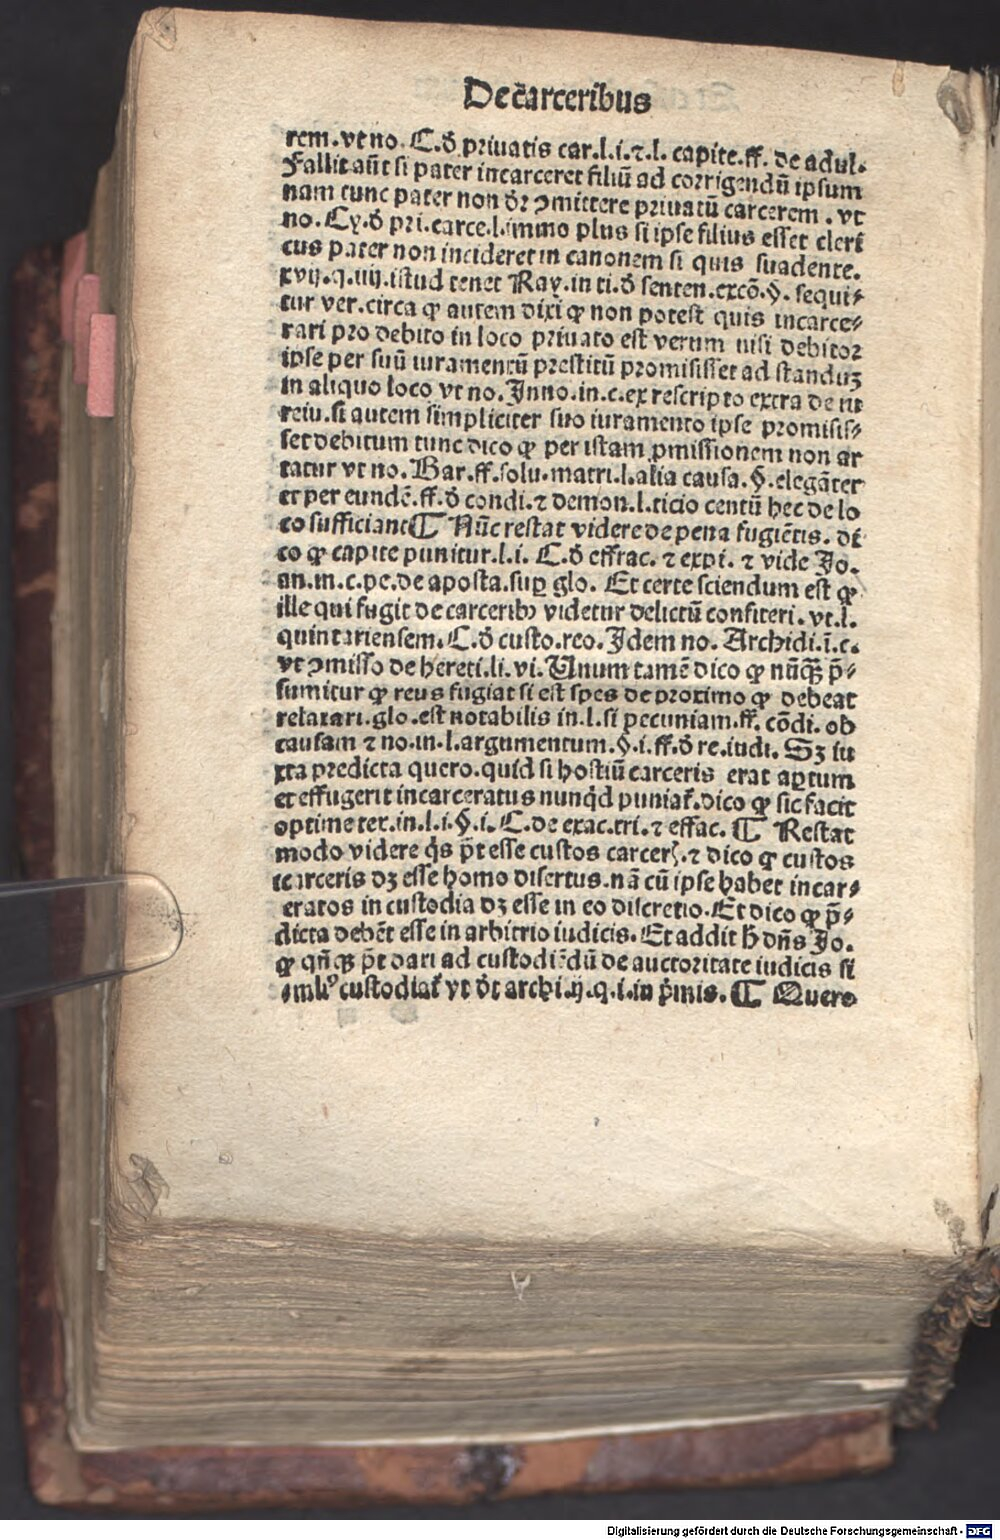 De carceribus
rem.vt no. C.đ priuatis car.l.i.⁊.l. capite.ff. de adul.
Fallit aūt si pater incarceret filiū ad corrigendū ipsum
nam tunc pater non đr ꝯmittere priuatū carcerem . vt
no. Cy.đ pri.carce.l.immo plus si ipse filius esset cleri
cus pater non incideret in canonem si quis suadente.
xvij.q.iiij.istud tenet Ray.in ti.đ senten.excō.§. sequi⸗
tur ver.circa ꝙ autem dixi ꝙ non potest quis incarce⸗
rari pro debito in loco priuato est verum nisi debitor
ipse per suū iuramentū prestitū promisisset ad standuꝫ
in aliquo loco vt no. Inno.in.c.ex rescripto extra de iu
reiu.si autem simpliciter suo iuramento ipse promisis⸗
set debitum tunc dico ꝙ per istam ꝓmissionem non ar
tatur vt no. Bar.ff.solu.matri.l.alia causa.§.elegāter
et per eundē.ff.đ condi.⁊ demon.l.ticio centū hec de lo
co sufficiant ¶ Nūc restat videre de pena fugiētis. di
co ꝙ capite punitur.l.i. C.đ effrac.⁊ expi.⁊ vide Jo.
an.in.c.pe.de aposta.suꝑ glo. Et certe sciendum est ꝙ
ille qui fugit de carceribꝰ videtur delictū confiteri.vt.l.
quintariensem.C.đ custo.reo. Idem no. Archidi.ī.c.
vt ꝯmisso de hereti.li.vi. Unum tamē dico ꝙ nūꝗ̄ p̄⸗
sumitur ꝙ reus fugiat si est spes de proximo ꝙ debeat
relaxari.glo.est notabilis in.l.si pecuniam.ff. cōdi. ob
causam ⁊ no.in.l.argumentum.§.i.ff.đ re.iudi. Sꝫ iu
xta predicta quero.quid si hostiū carceris erat aꝑtum
et effugerit incarceratus nunqd puniat̄.dico ꝙ sic facit
optime tex.in.l.i.§.i. C.de exac.tri.⁊ effac. ¶ Restat
modo videre q̇s p̄t esse custos carcerꝭ.⁊ dico ꝙ custos
carceris dꝫ esse homo disertus.nā cū ipse habet incar⸗
eratos in custodia dꝫ esse in eo discretio.Et dico ꝙ p̄⸗
dicta debēt esse in arbitrio iudicis. Et addit ħ dn̄s Jo.
ꝙ qn̄ꝗ p̄t dari ad custodiēdū de auctoritate iudicis si
mlꝰ custodiat̄ vt đt archi.ij.q.i.in p̄mis. ¶ Quero